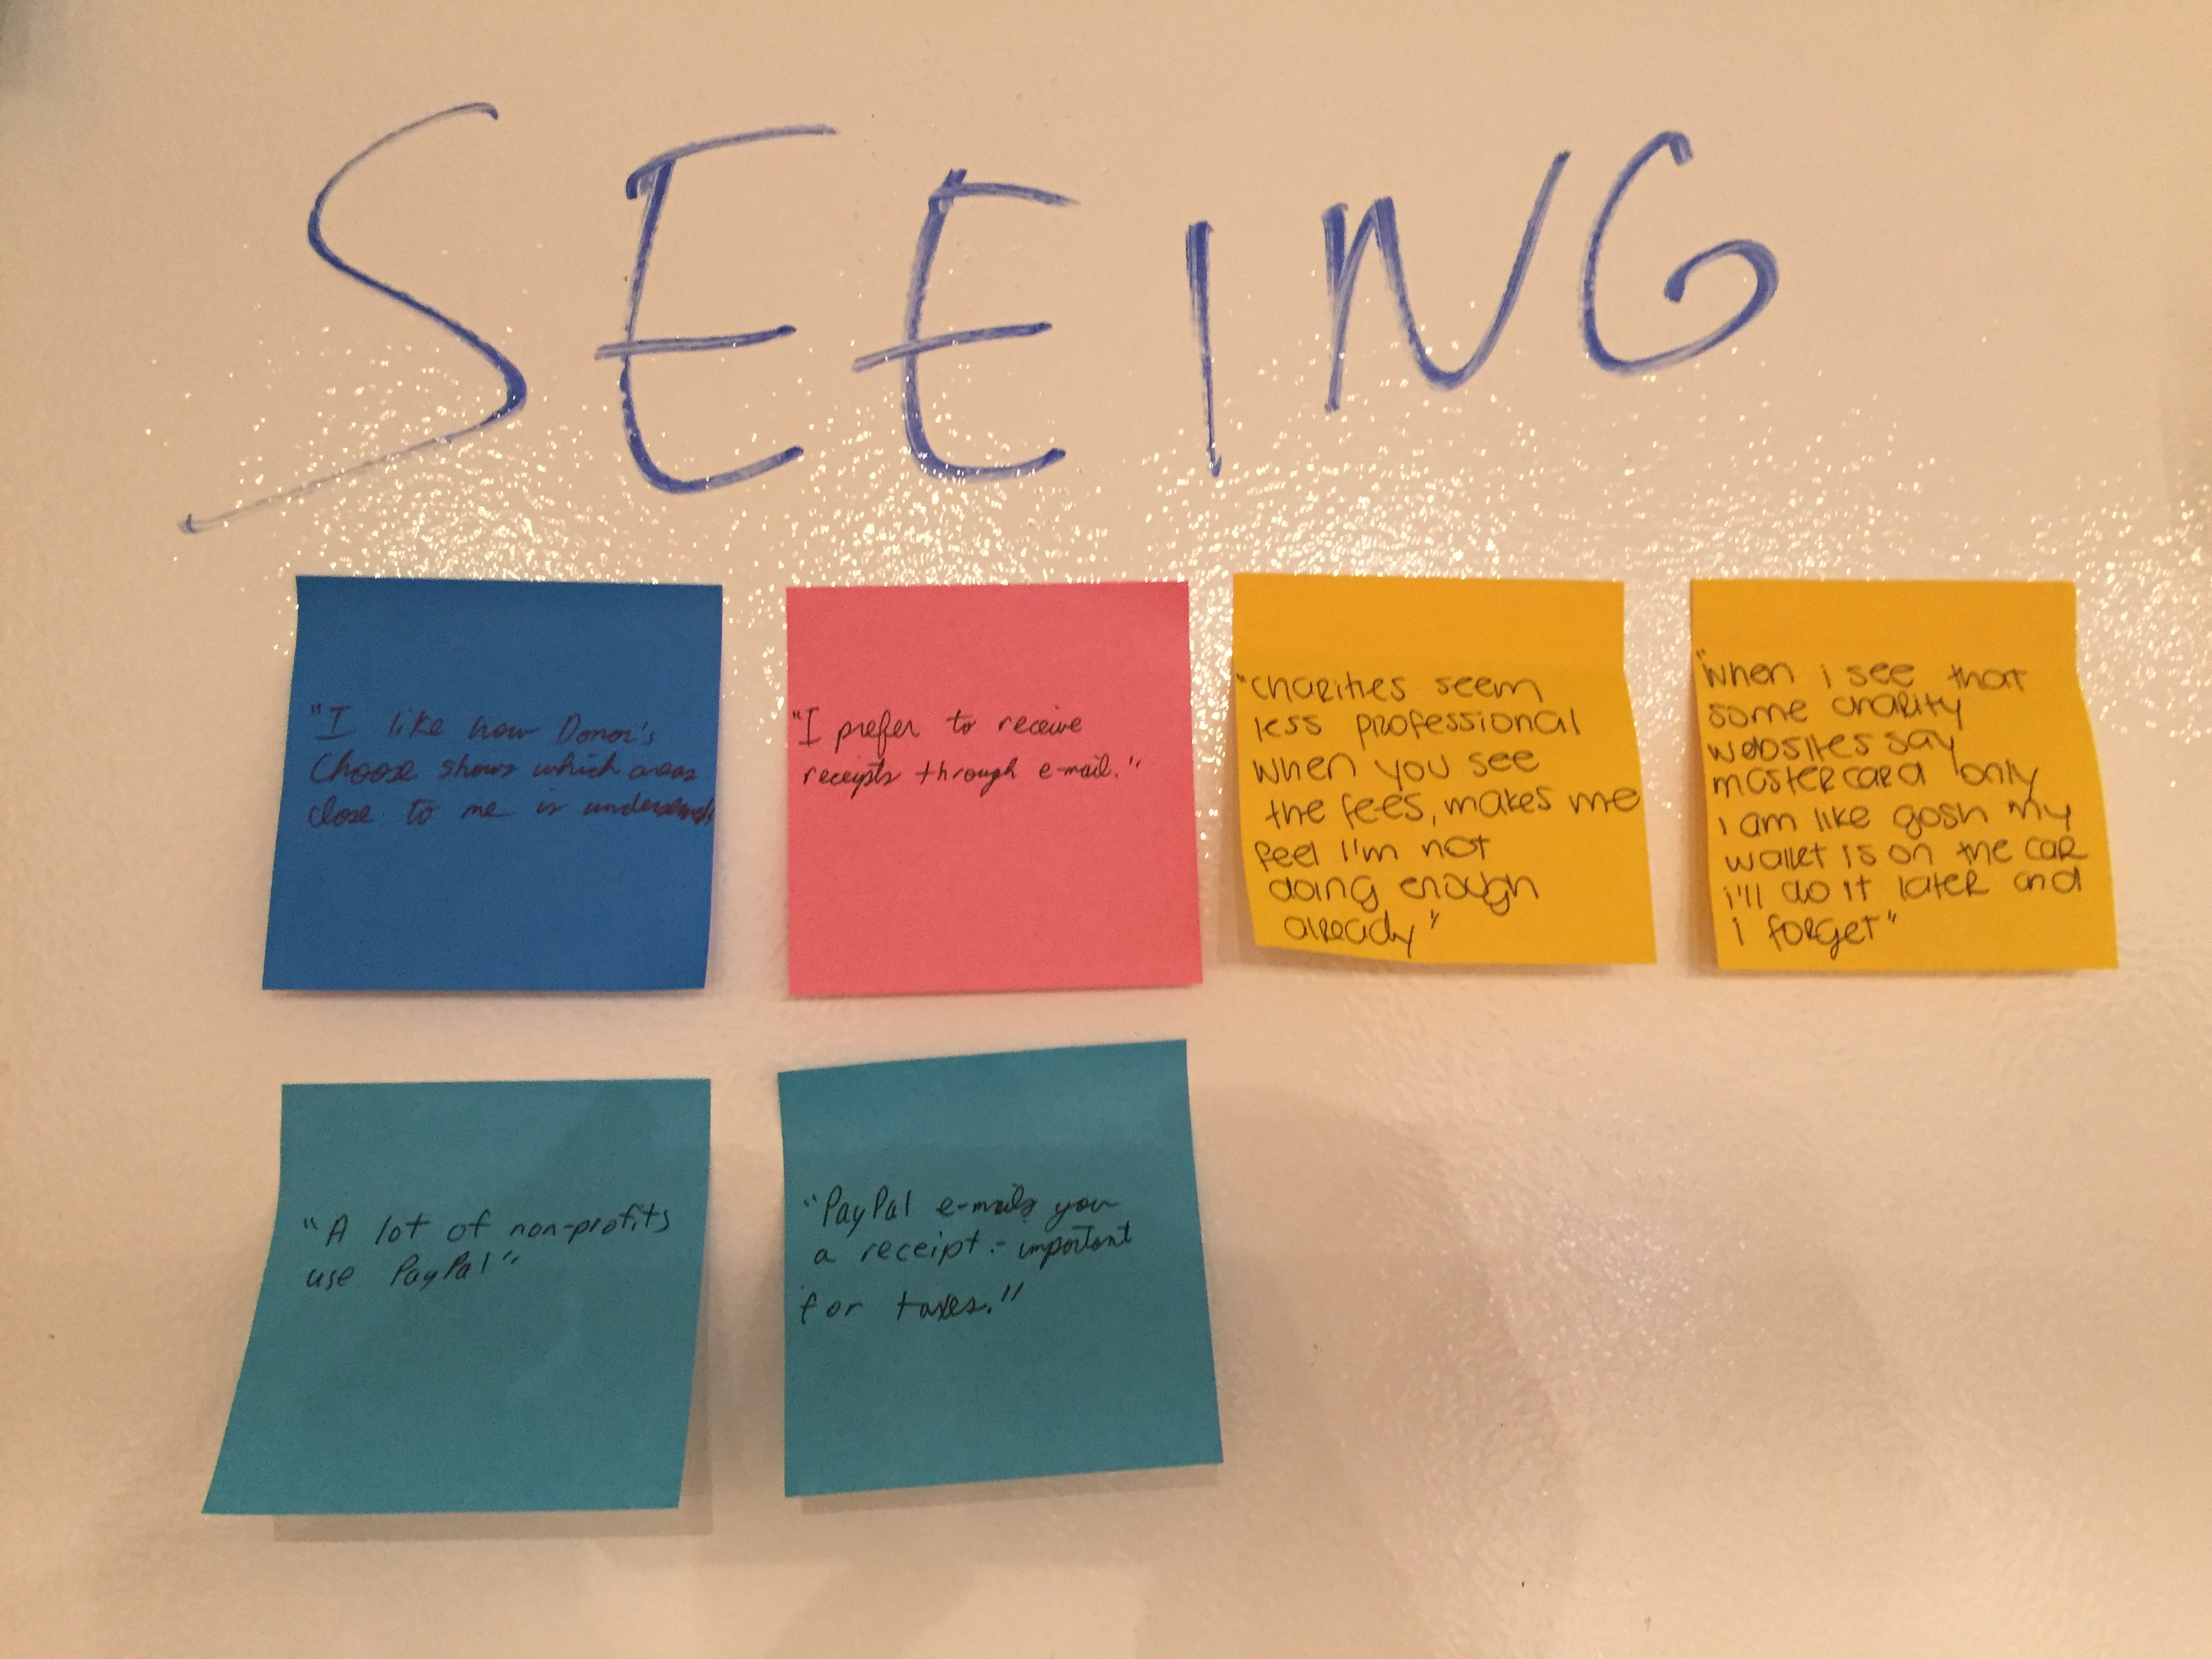 SEEING
"I like how Donor's
Choose shows which areas
close to me is
"I prefer to receive
receipts through e-mail."
"Charities seem
less professional
when you see
the fees, makes me
feel I'm not
doing enough
already"
"When i see that
some charity
websites say
mastercard only
i am like gosh my
wallet is on the car
i'll do it later and
i forget"
"A lot of non-profits
use PayPal"
"PayPal e-mails you
a receipt - important
for taxes."